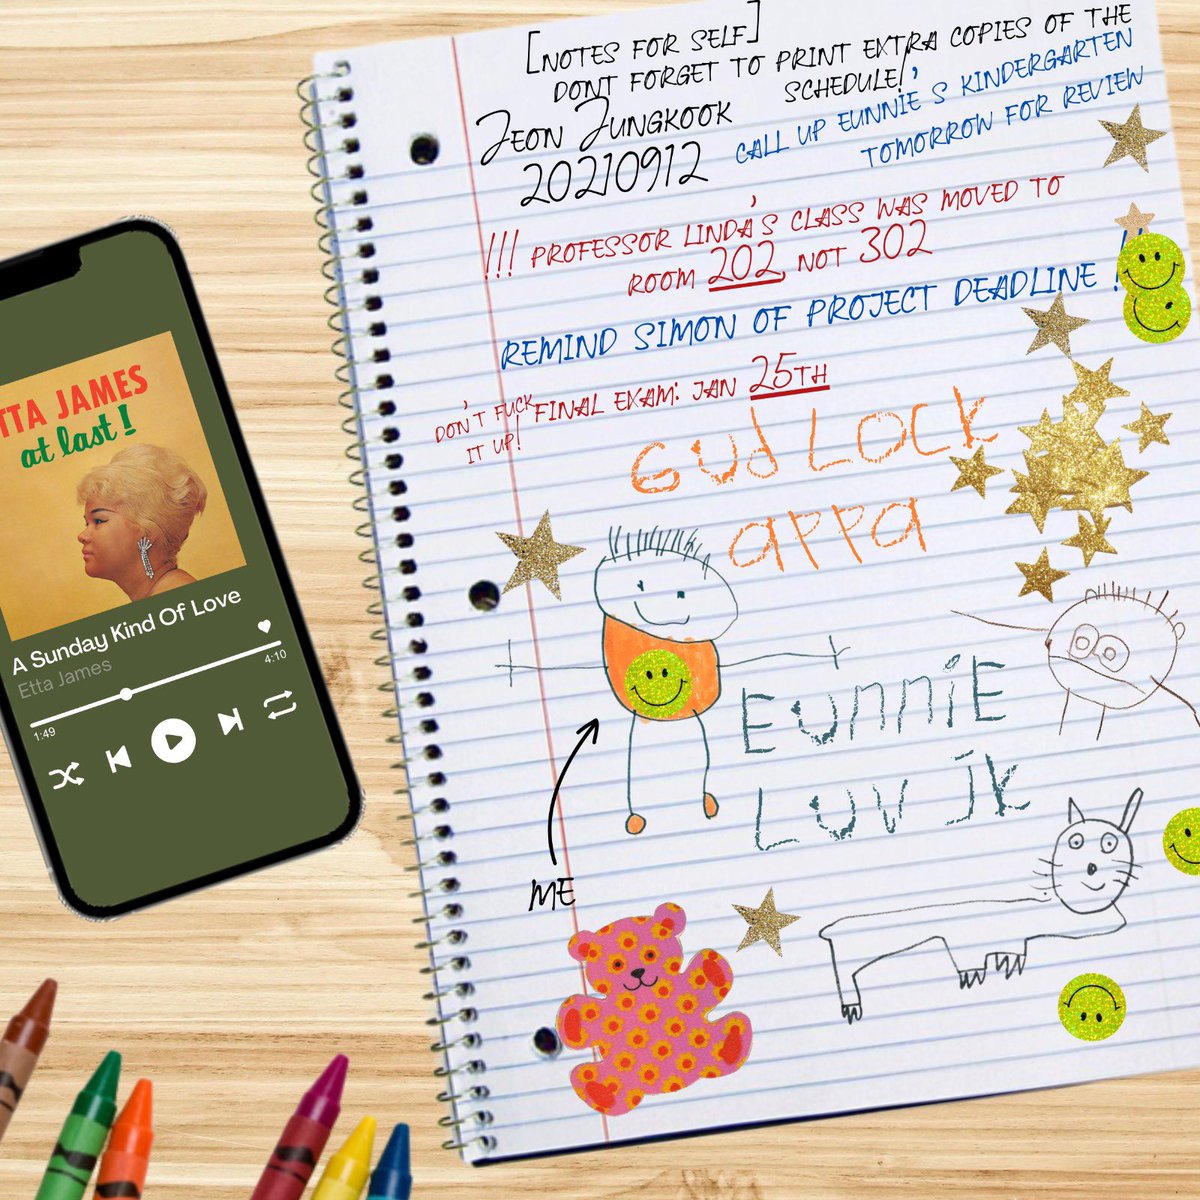 [NOTES FOR SELF]
DONT FORGET TO PRINT EXTRA COPIES OF THE
SCHEDULE!
JEON JUNGKOOK
20210912
CALL UP EUNNIE'S KINDERGARTEN
TOMORROW FOR REVIEW
!!! PROFESSOR LINDA'S CLASS WAS MOVED TO
ROOM 202, NOT 302
REMIND SIMON OF PROJECT DEADLINE !!
FINAL EXAM: JAN 25TH
DON'T FUCK
IT UP!
GUd LOCK
appa
EUnniE
LUV jk
ME
ETTA JAMES
at last!
A Sunday Kind Of Love
Etta James
1:49
4:10